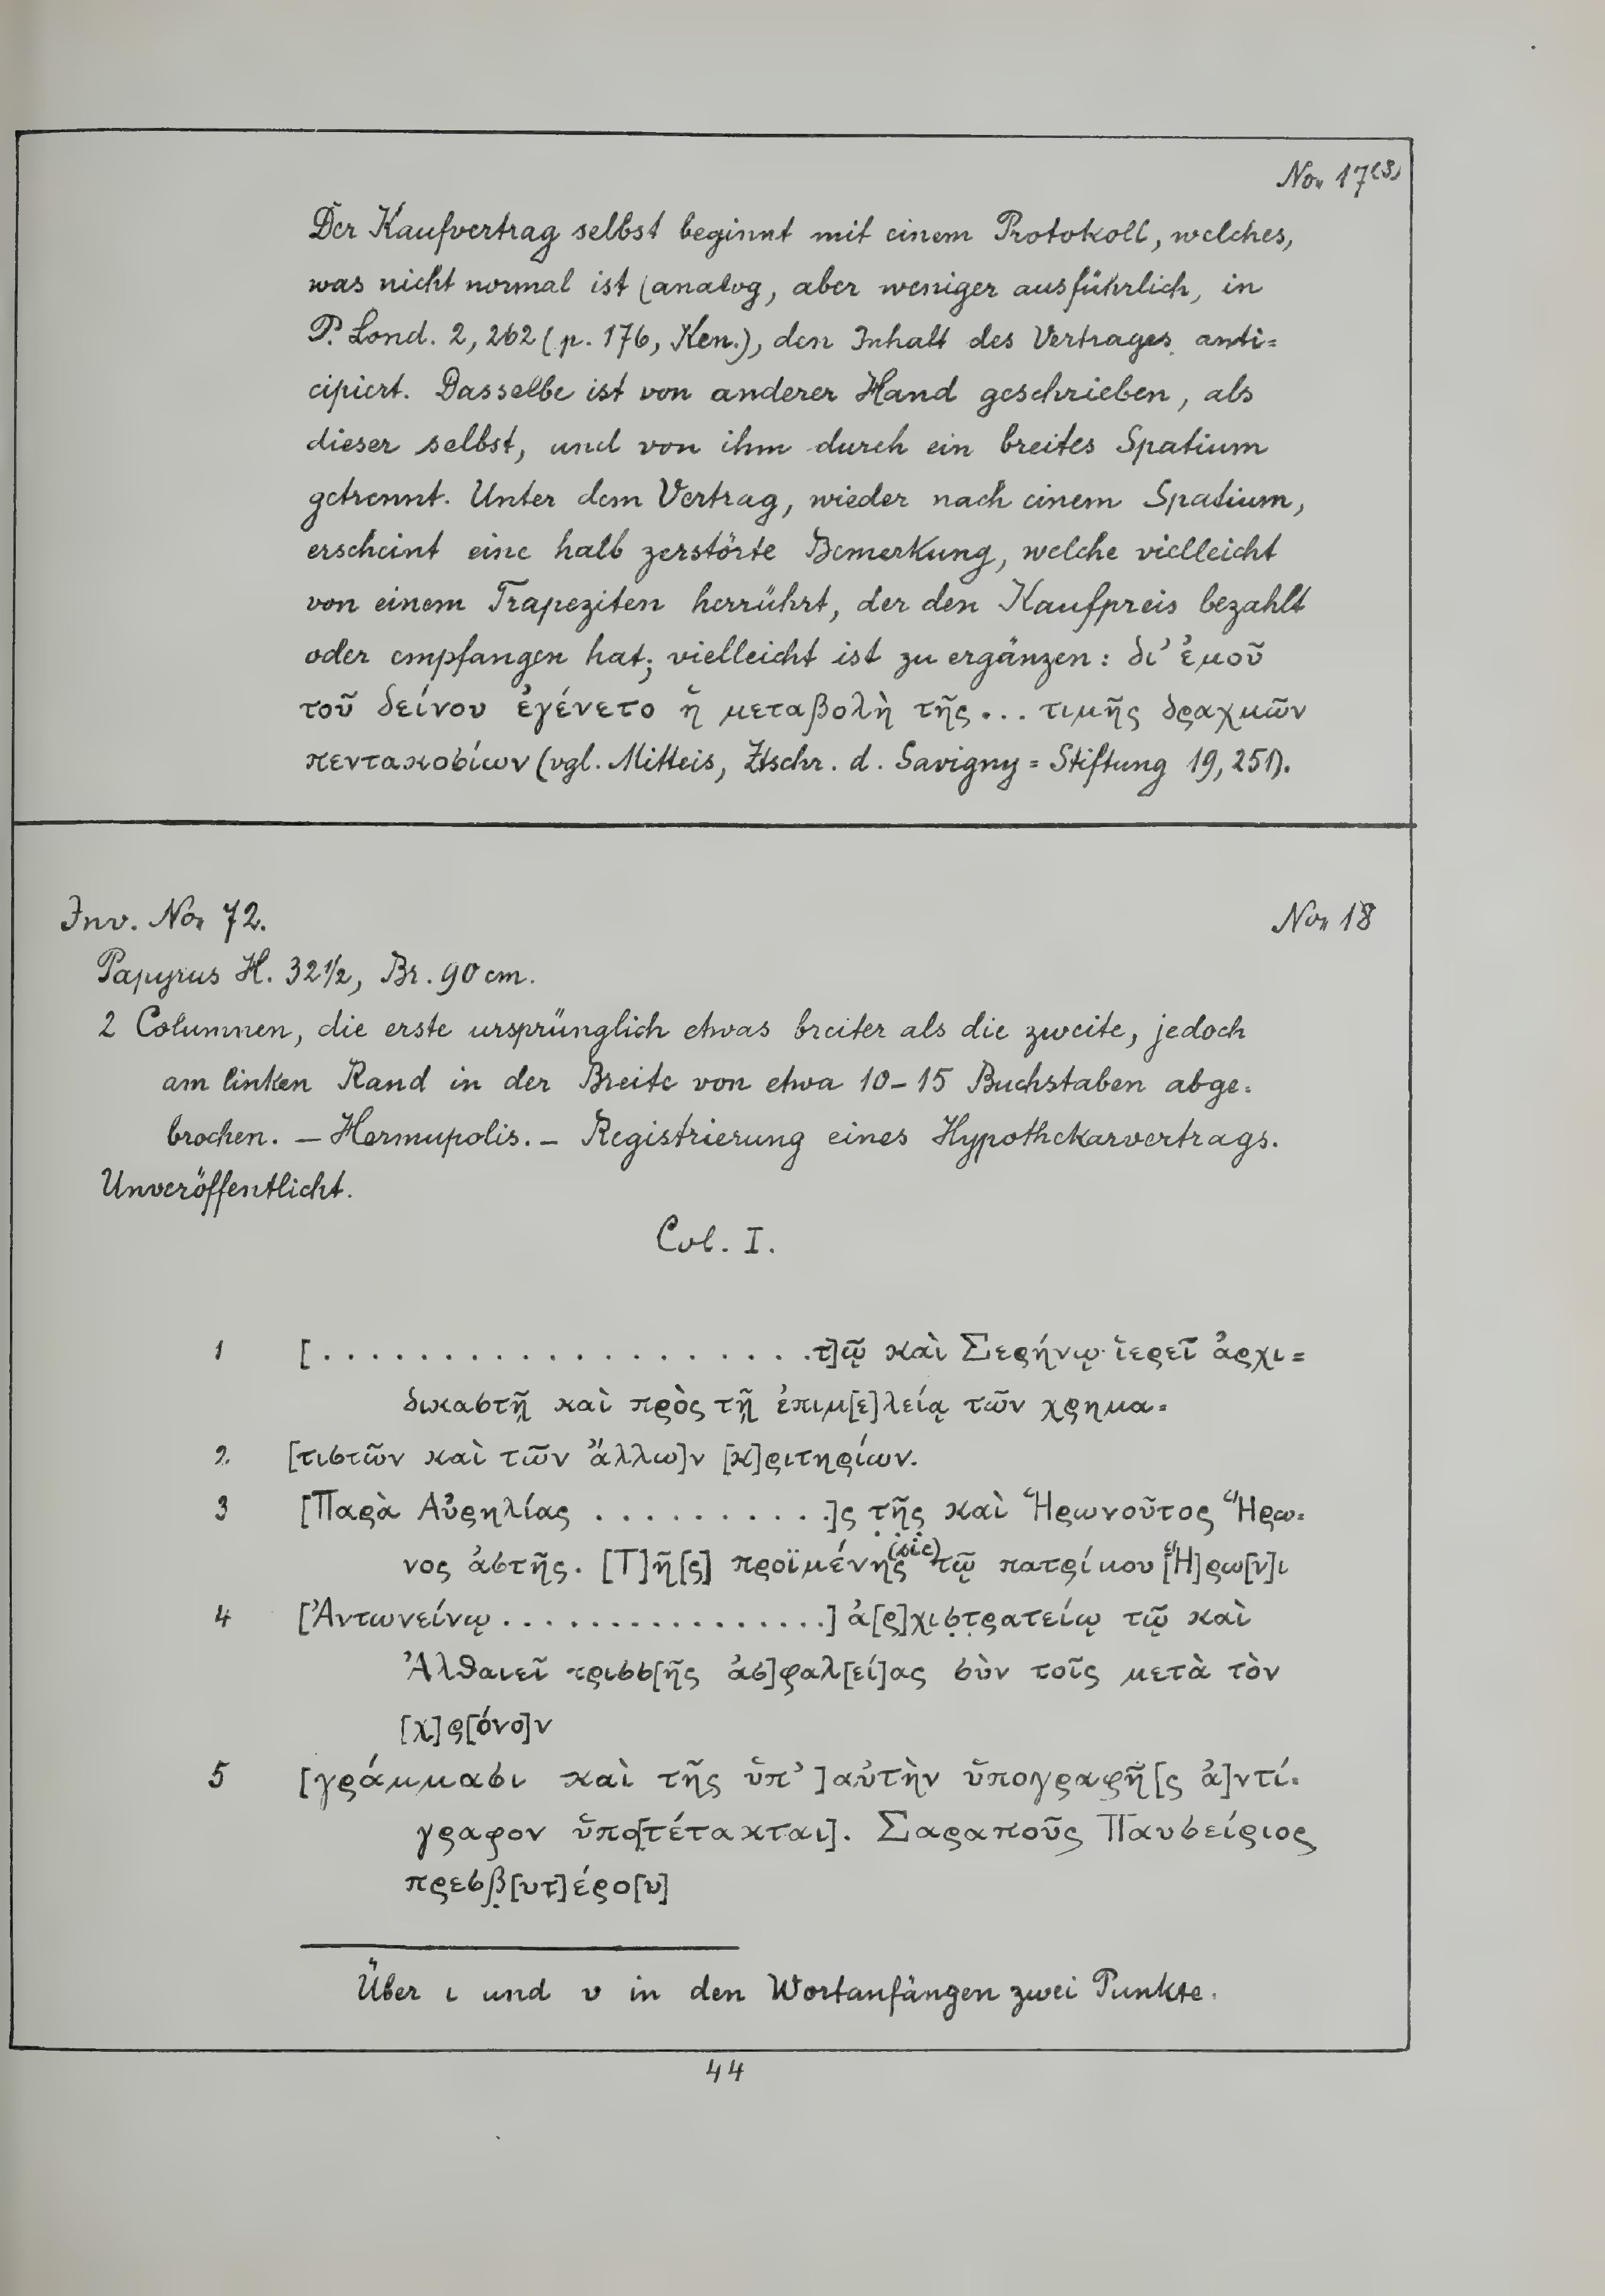 No. 17(3)
Der Kaufvertrag selbst beginnt mit einem Protokoll, welches,
was nicht normal ist (analog, aber weniger ausführlich, in
P. Lond. 2, 262 (p. 176, Ken.), den Inhalt des Vertrages anti=
cipiert. Dasselbe ist von anderer Hand geschrieben, als
dieser selbst, und von ihm durch ein breites Spatium
getrennt. Unter dem Vertrag, wieder nach einem Spatium,
erscheint eine halb zerstörte Bemerkung, welche vielleicht
von einem Trapeziten herrührt, der den Kaufpreis bezahlt
oder empfangen hat; vielleicht ist zu ergänzen: δι' ἐμοῦ
τοῦ δείνου ἐγένετο ἡ μεταβολὴ τῆς ... τιμῆς δραχμῶν
πεντακοσίων (vgl. Mitteis, Ztschr. d. Savigny=Stiftung 19, 251).
Inv. No. 72.
No. 18
Papyrus H. 32 1/2, Br. 90 cm.
2 Columnen, die erste ursprünglich etwas breiter als die zweite, jedoch
am linken Rand in der Breite von etwa 10–15 Buchstaben abge=
brochen. — Hermupolis. – Registrierung eines Hypothekarvertrags.
Unveröffentlicht.
Col. I.
1 [. . . . . . . . . . . . . . . . . . . . . τ]ῷ καὶ Σερήνῳ ἱερεῖ ἀρχι=
δικαστῇ καὶ πρὸς τῇ ἐπιμ[ε]λείᾳ τῶν χρημα=
2 [τιστῶν καὶ τῶν ἄλλω]ν [κ]ριτηρίων.
3 [Παρὰ Αὐρηλίας . . . . . . . . . . .]ς τῆς καὶ Ἡρωνοῦτος Ἥρω=
νος ἀστῆς. [Τ]ῆ[ς] προϊμένης (sic) τῷ πατρίκου [Ἥ]ρω[ν]ι
4 [Ἀντωνείνῳ . . . . . . . . . . . . . . . .] ἀ[ρ]χιστρατείῳ τῷ καὶ
Ἀλθαιεῖ τρισσ[ῆς ἀσ]φαλ[εί]ας σὺν τοῖς μετὰ τὸν
[χ]ρ[όνο]ν
5 [γράμμασι καὶ τῆς ὑπ' ]αὐτὴν ὑπογραφῆ[ς ἀ]ντί=
γραφον ὑπο[τέτακται]. Σαραποῦς Παυσείριος
πρεσβ[υτ]έρο[υ]
Über ι und υ in den Wortanfängen zwei Punkte.
44